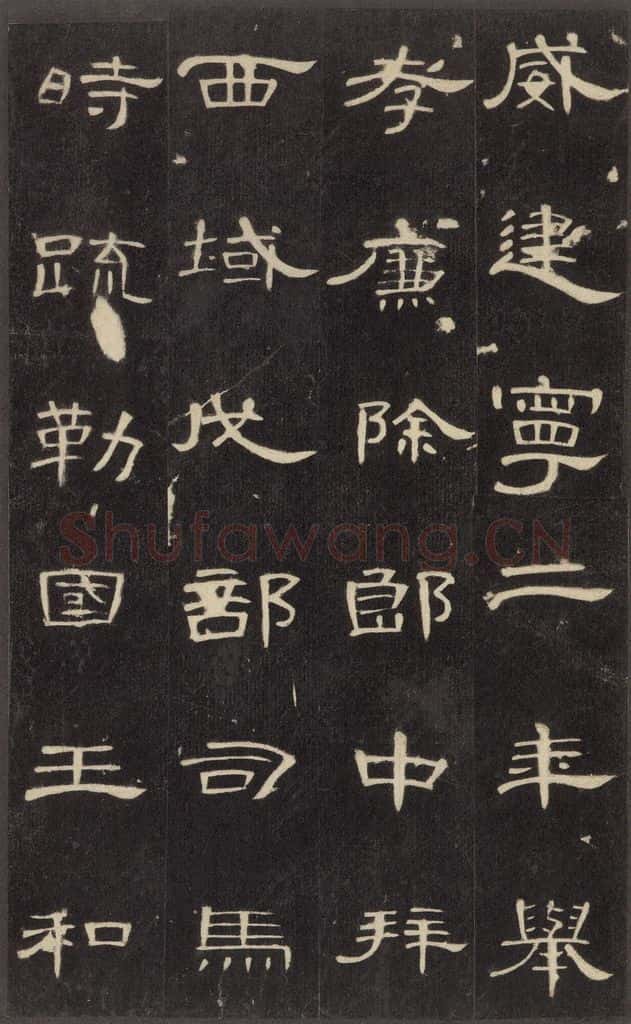 威建寧二年舉
孝廉除郎中拜
西域戊部司馬
時疏勒國王和
Shufawang.CN